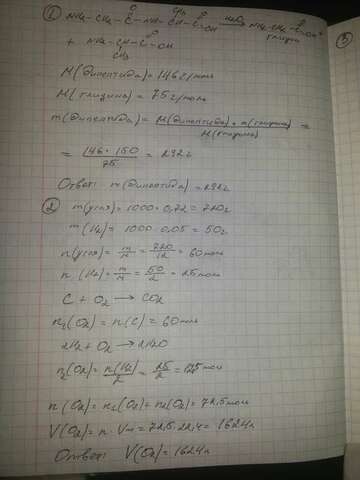 ① NH2-CH2-C-NH-CH-C-OH H2O NH2-CH2-C-OH
O CH3 O O
глицин
+ NH2-CH-C-OH
CH3
M(дипептида)=146г/моль
M(глицина)=75г/моль
m(дипептида)= M(дипептида)·m(глицина) / M(глицина) =
= 146·150 / 75 = 292г
Ответ: m(дипептида)=292г
② m(угля)=1000·0,72=720г
m(H2)=1000·0,05=50г
n(угля)= m/M = 720/12 = 60моль
n(H2)= m/M = 50/2 = 25моль
C + O2 → CO2
n1(O2)=n(C)=60моль
2H2+O2 → 2H2O
n2(O2)= n(H2)/2 = 25/2 = 12,5моль
n(O2)=n1(O2)+n2(O2)=72,5моль
V(O2)=n·Vm=72,5·22,4=1624л
Ответ: V(O2)=1624л
③